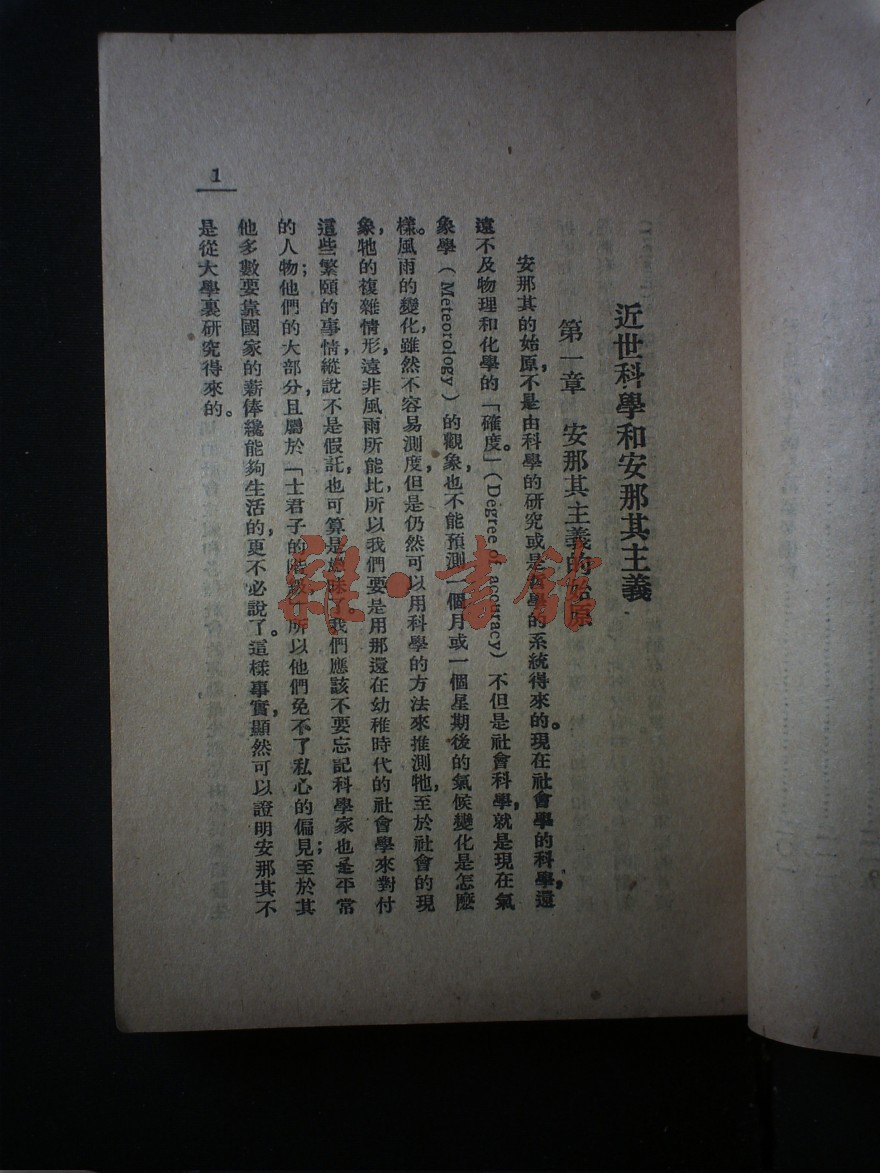 近世科學和安那其主義
第一章 安那其主義的始原
安那其的始原，不是由科學的研究或是哲學的系統得來的。現在社會學的科學，還
遠不及物理和化學的「確度」。(Degree of accuracy) 不但是社會科學，就是現在氣
象學 (Meteorology) 的觀象，也不能預測一個月或一個星期後的氣候變化是怎麼
樣。風雨的變化，雖然不容易測度，但是仍然可以用科學的方法來推測牠，至於社會的現
象，牠的複雜情形，遠非風雨所能比，所以我們要是用那還在幼稚時代的社會學來對付
這些繁頤的事情，縱說不是假託，也可算是 了。我們應該不要忘記科學家也是平常
的人物；他們的大部分，且屬於「士君子的階級」所以他們免不了私心的偏見；至於其
他多數要靠國家的薪俸纔能夠生活的，更不必說了。這樣事實，顯然可以證明安那其不
是從大學裏研究得來的。
1
雜·書館